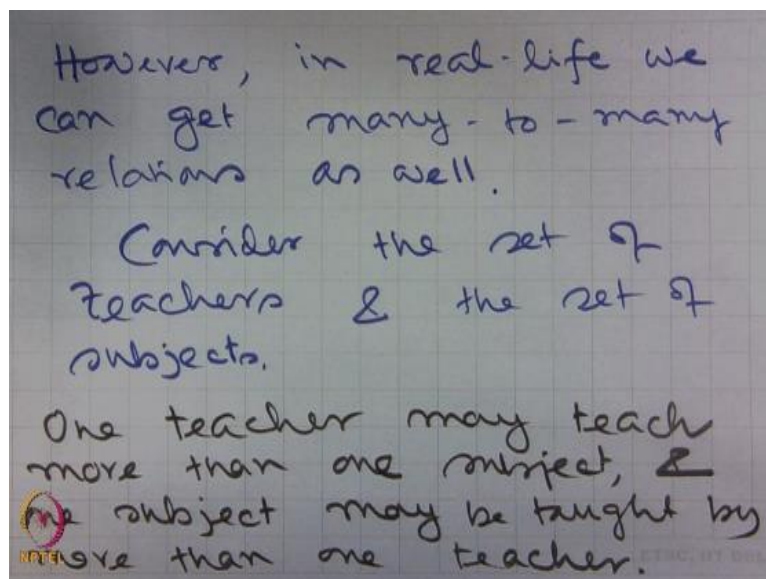 However, in real-life we
can get many-to-many
relations as well.
Consider the set of
teachers & the set of
subjects.
One teacher may teach
more than one subject, &
one subject may be taught by
more than one teacher.
NPTEL
ETSC, IIT DEL